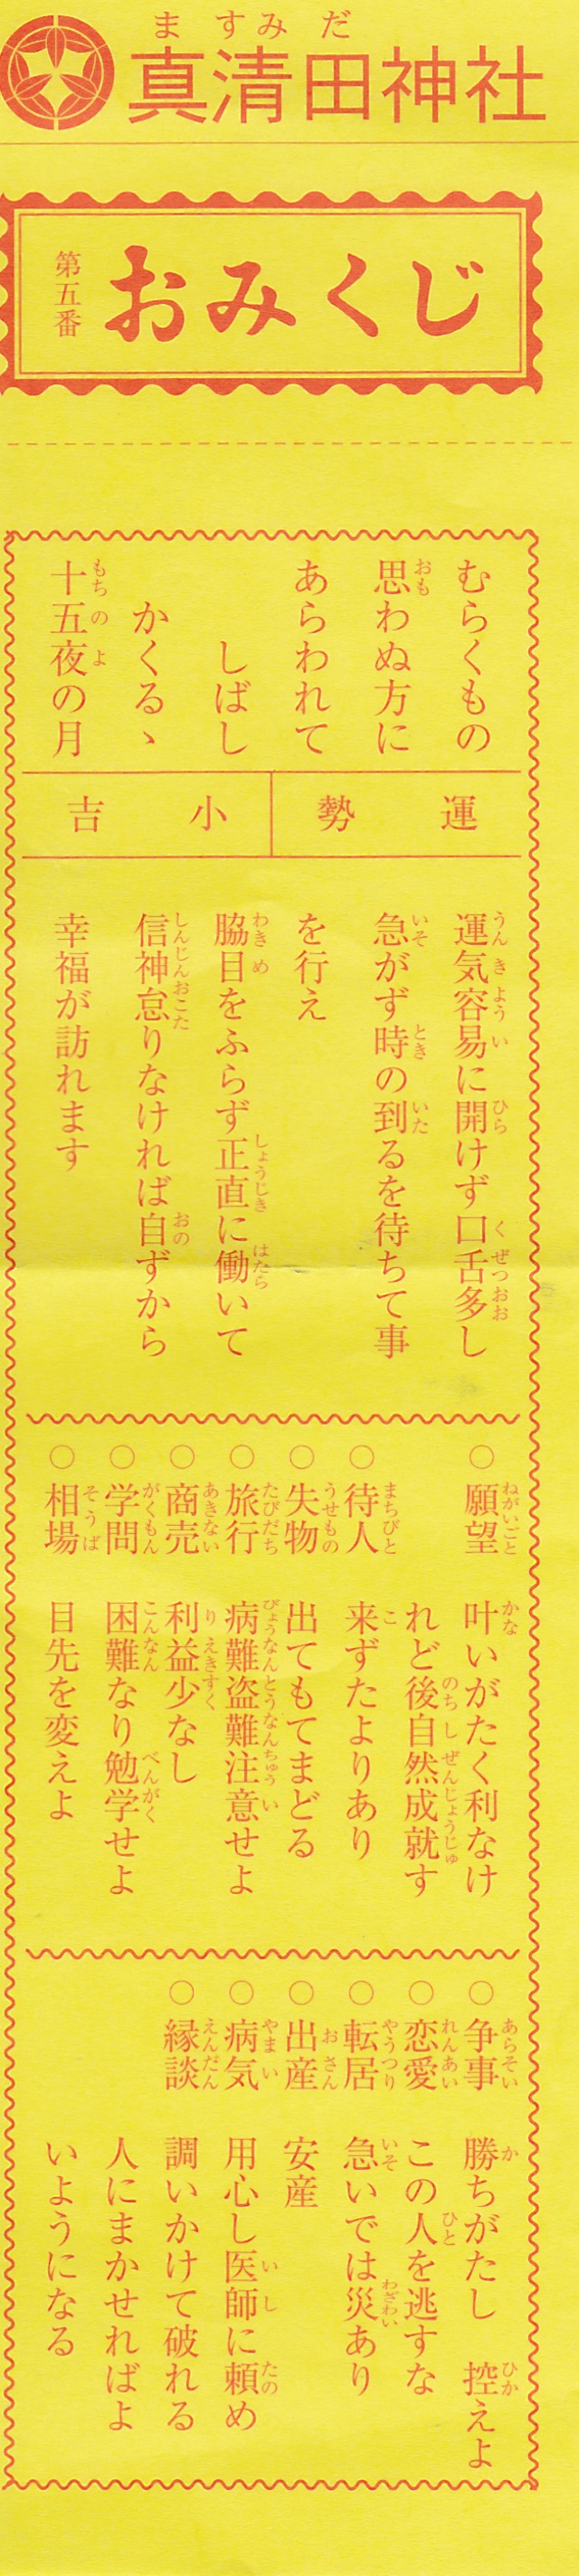 ますみだ
真清田神社
おみくじ
第五番
むらくもの
思わぬ方に
あらわれて
しばし
かくるゝ
十五夜の月
運勢
小吉
運気容易に開けず口舌多し
急がず時の到るを待ちて事
を行え
脇目をふらず正直に働いて
信神怠りなければ自ずから
幸福が訪れます
○願望 叶いがたく利なけ
れど後自然成就す
○待人 来ずたよりあり
○失物 出てもてまどる
○旅行 病難盗難注意せよ
○商売 利益少なし
○学問 困難なり勉学せよ
○相場 目先を変えよ
○争事 勝ちがたし 控えよ
○恋愛 この人を逃すな
○転居 急いでは災あり
○出産 安産
○病気 用心し医師に頼め
○縁談 調いかけて破れる
人にまかせればよ
いようになる